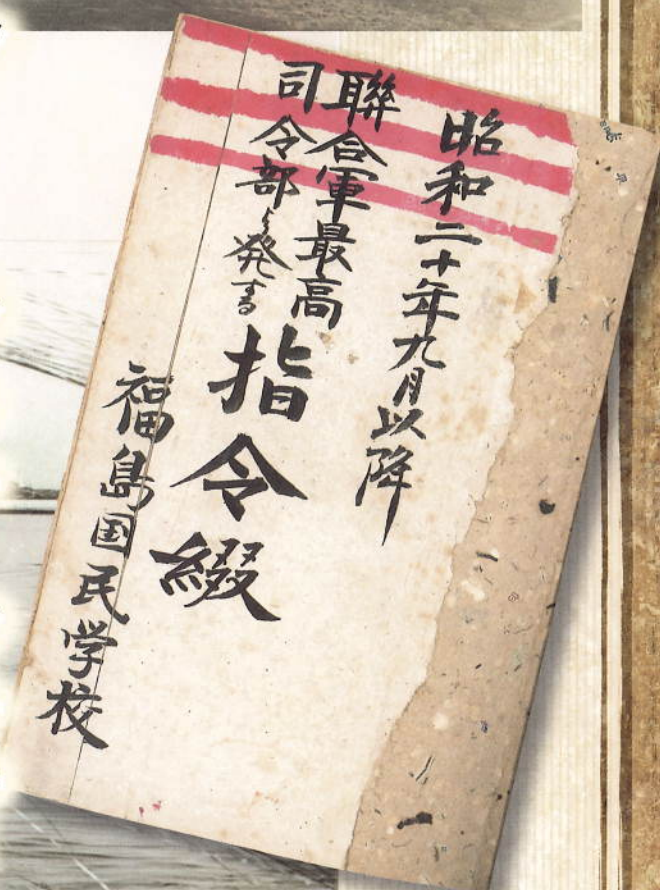 昭和二十年九月以降
聯合軍最高
司令部より発する
指令綴
福島国民学校